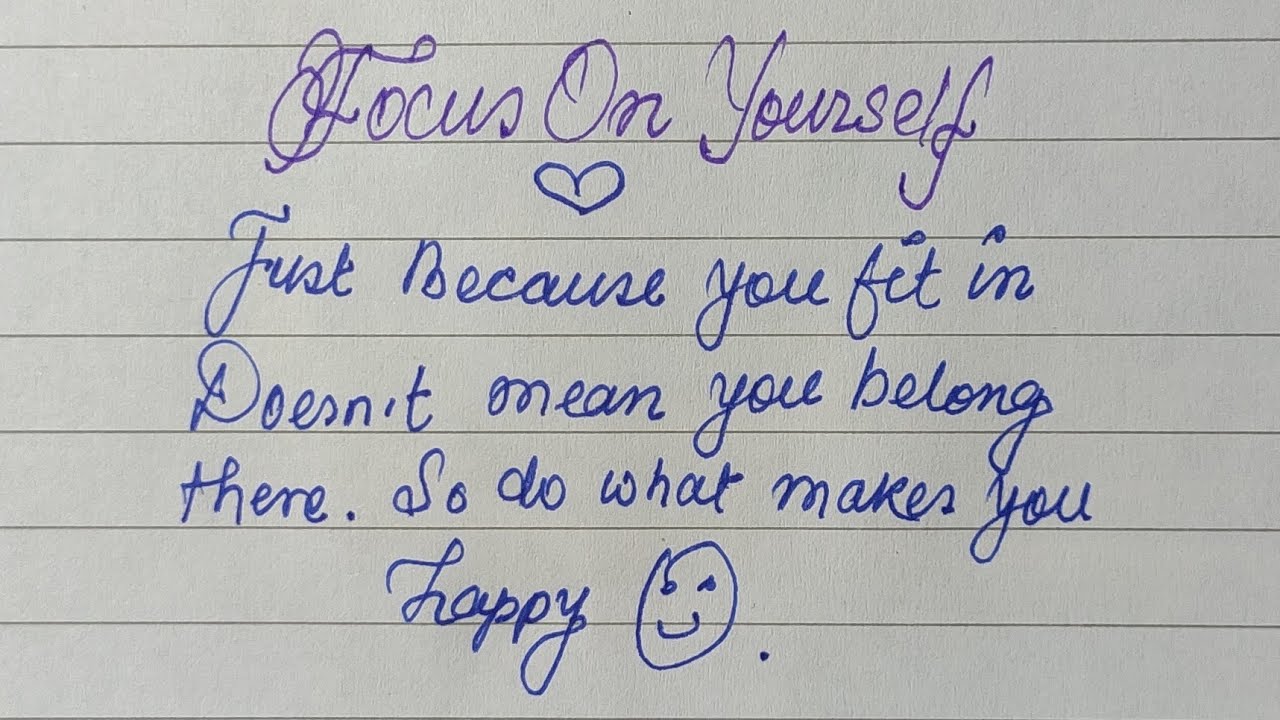 Focus On Yourself
Just Because you fit in
Doesn't mean you belong
there. So do what makes you
happy .